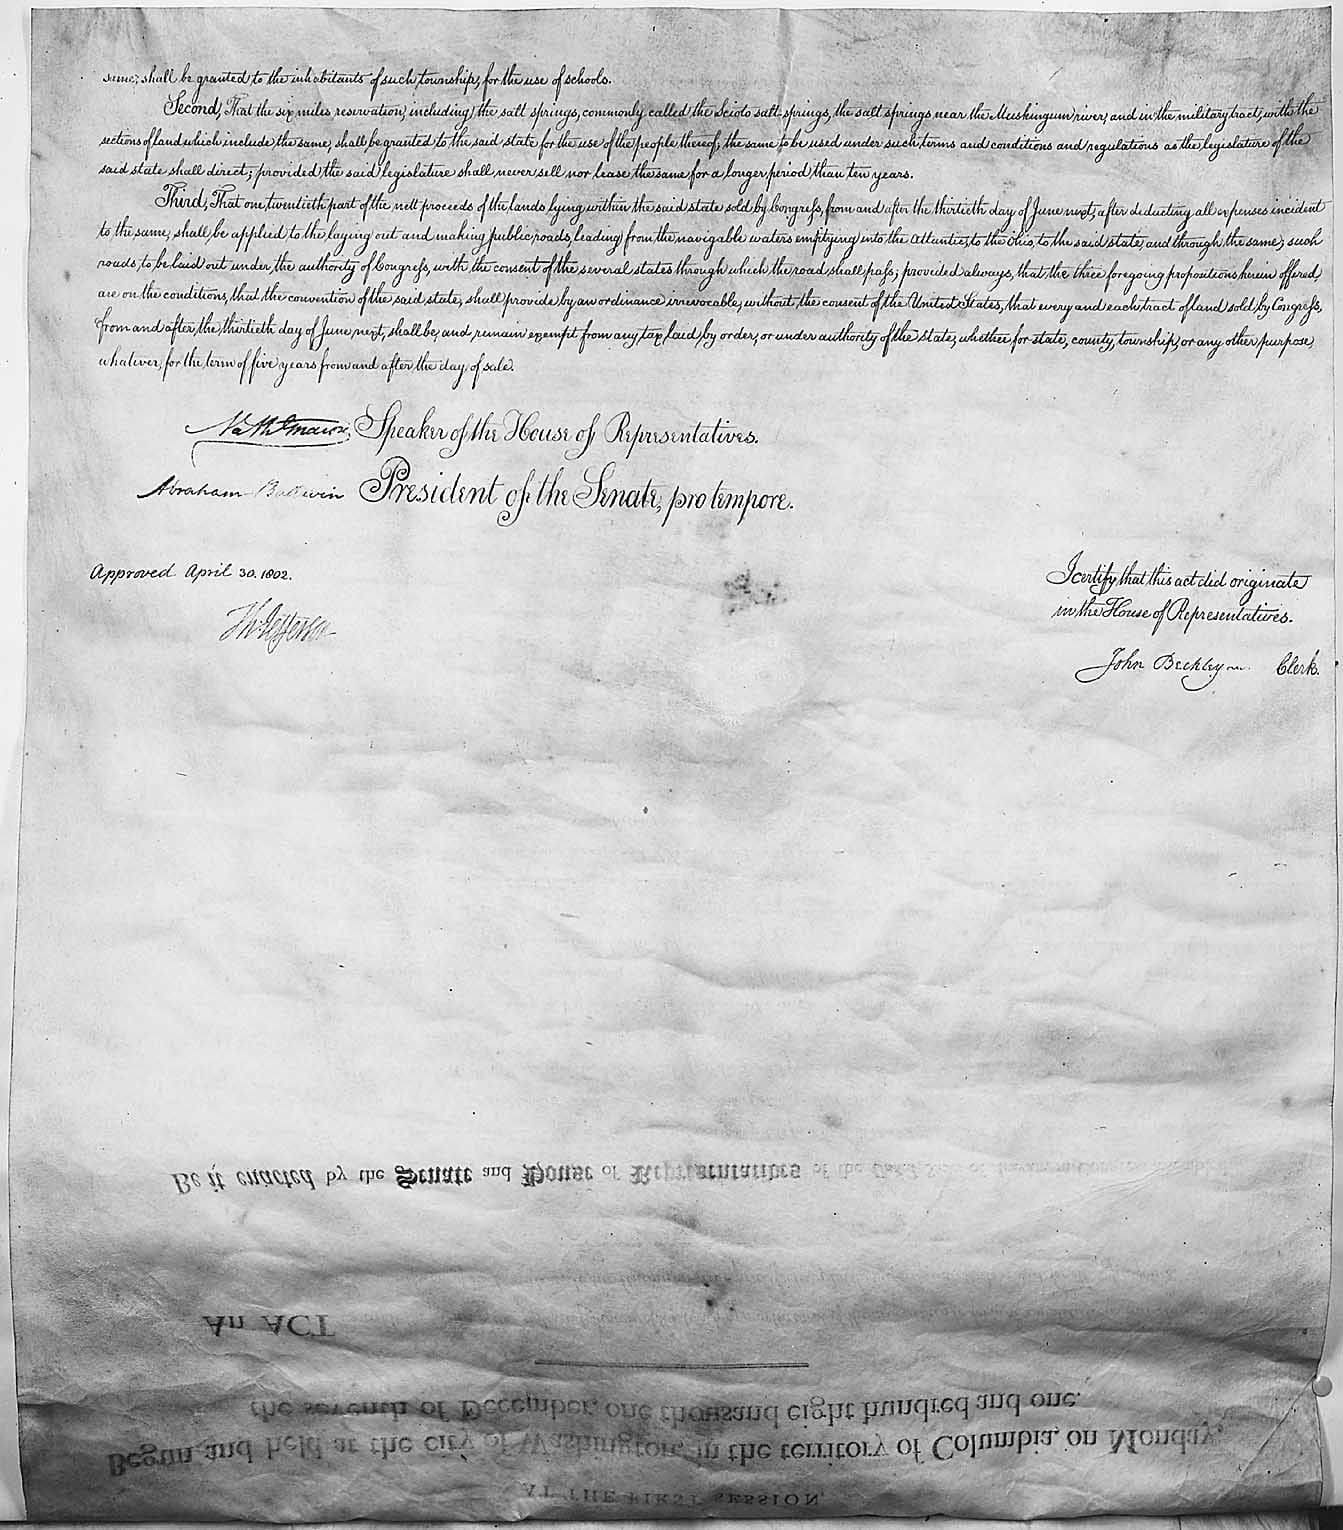 same; shall be granted to the inhabitants of such township, for the use of schools.
Second, That the six miles reservation, including the salt springs, commonly called the Scioto salt springs, the salt springs near the Muskingum river, and in the military tract, with the
sections of land which include the same, shall be granted to the said state for the use of the people thereof, the same to be used under such terms and conditions and regulations as the legislature of the
said state shall direct; provided the said legislature shall never sell nor lease the same for a longer period than ten years.
Third, That one twentieth part of the nett proceeds of the lands lying within the said state sold by Congress, from and after the thirtieth day of June next, after deducting all expenses incident
to the same, shall be applied to the laying out and making public roads, leading from the navigable waters emptying into the Atlantic, to the Ohio, to the said state, and through the same; such
roads, to be laid out under the authority of Congress, with the consent of the several states through which the road shall pass; provided always, that the three foregoing propositions herein offered,
are on the conditions, that the convention of the said state, shall provide by an ordinance irrevocable, without the consent of the United States, that every and each tract of land sold by Congress,
from and after the thirtieth day of June next, shall be, and remain exempt from any tax laid by order, or under authority of the state, whether for state, county, township, or any other purpose,
whatever, for the term of five years from and after the day of sale.
Nath Macon, Speaker of the House of Representatives.
Abraham Baldwin President of the Senate, pro tempore.
Approved April 30. 1802.
Th: Jefferson
I certify that this act did originate
in the House of Representatives.
John Beckley Clerk.
Be it enacted by the Senate and House of Representatives of the
An ACT
the seventh of December, one thousand eight hundred and one.
Begun and held at the city of Washington, in the territory of Columbia, on Monday,
AT THE FIRST SESSION,